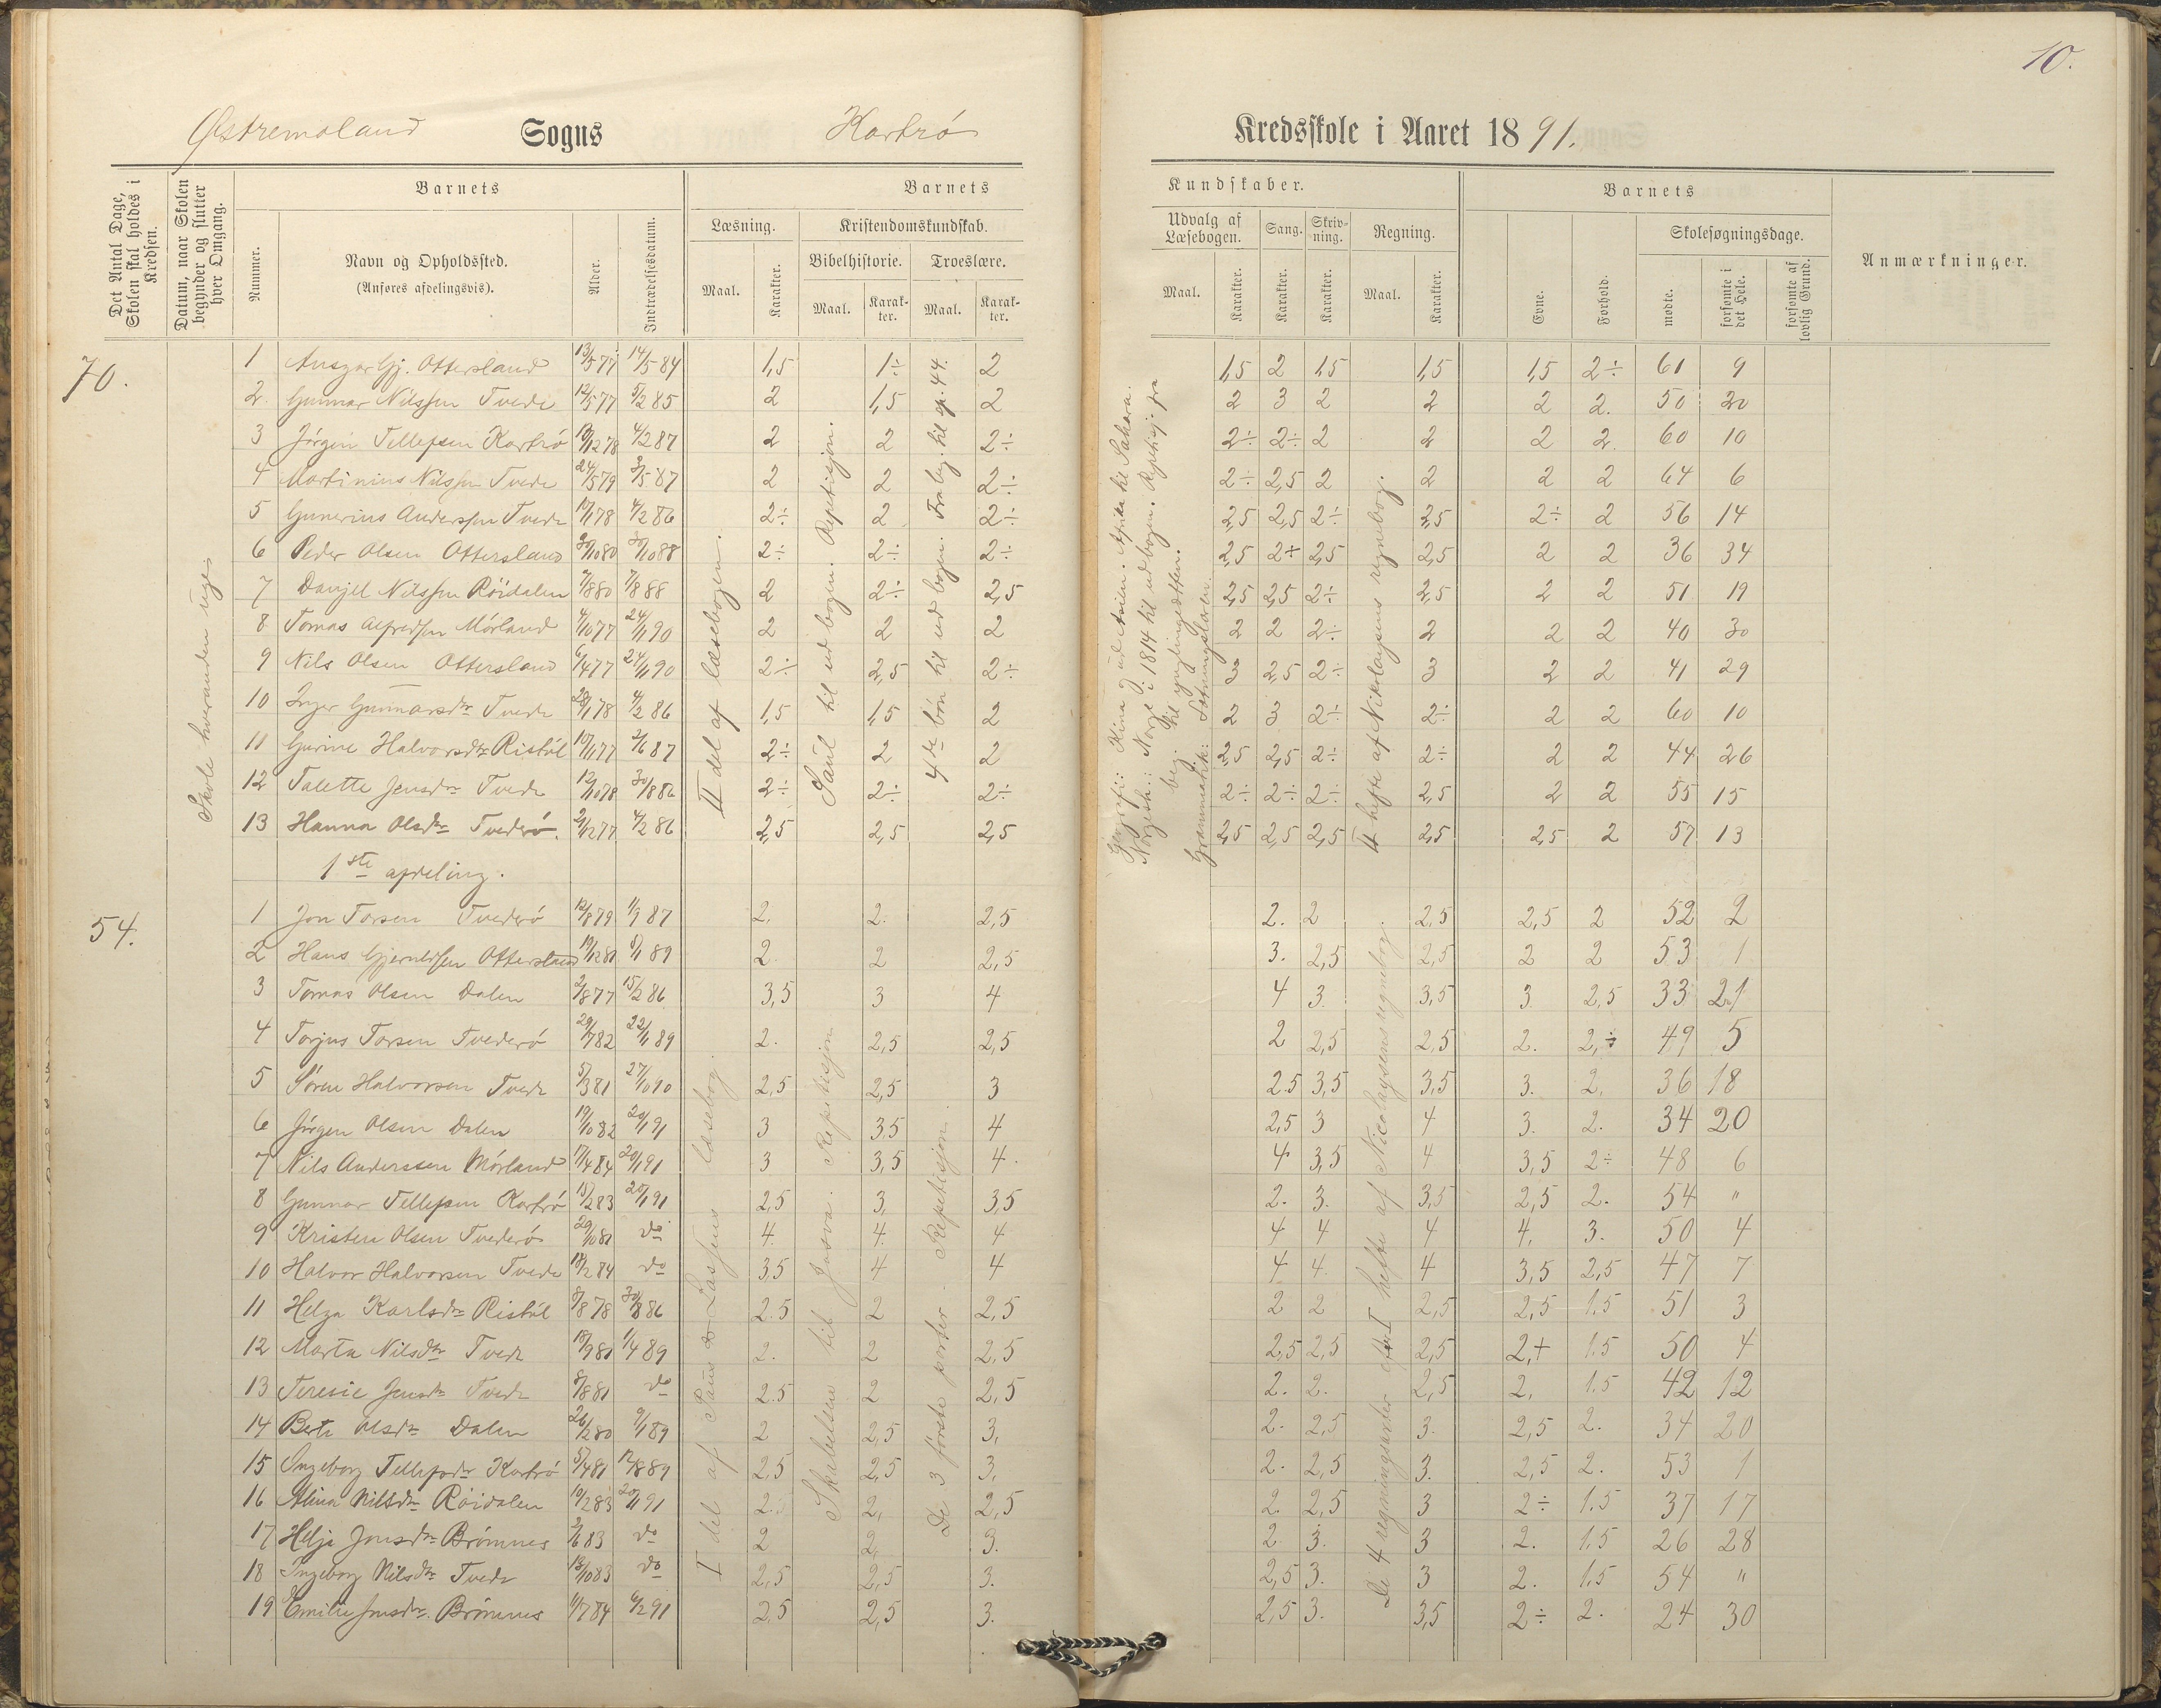 10.
Østremoland Sogns Kartrø Kredsskole i Aaret 1891.
Det Antal Dage, Skolen skal holdes i Kredsen.
Datum, naar Skolen begynder og slutter hver Omgang.
Barnets
Nummer. Navn og Opholdssted. (Anføres afdelingsvis). Alder. Indtrædelsesdatum.
Barnets Kundskaber.
Læsning. Kristendomskundskab. Udvalg af Læsebogen. Sang. Skrivning. Regning.
Maal. Karakter. Bibelhistorie. Maal. Karakter. Troeslære. Maal. Karakter. Maal. Karakter. Karakter. Karakter. Maal. Karakter.
Barnets
Evne. Forhold. Skolesøgningsdage. mødte. forsømte i det Hele. forsømte af lovlig Grund.
Anmærkninger.
70.
Skole hveranden uge
II del af læsebogen.
Saul til ud bogen. Repetisjon.
4de bøn til ud bogen. Fra beg. til sp. 44.
Geografi: Kina ud Asien. Afrika til Sahara.
Norgesh.: Norge i 1814 til ud bogen. Repetisj. fra
beg. til ynglingeætten.
Grammatik: Sætningslæren.
II hefte af Nikolaysens regnebog.
1 Ansgar Gj. Ottersland 13/5 77 14/5 84 1,5 1÷ 2 1,5 2 1,5 1,5 1,5 2÷ 61 9
2. Gunnar Nilssen Tvede 12/5 77 5/2 85 2 1,5 2 2 3 2 2 2 2. 50 20
3 Jørgen Tellefsen Kartrø 19/12 78 4/2 87 2 2 2÷ 2÷ 2÷ 2 2 2 2 60 10
4 Martinius Nilssen Tvede 24/5 79 3/5 87 2 2 2÷ 2÷ 2,5 2 2 2 2 64 6
5 Gunerius Anderssen Tvede 10/1 78 4/2 86 2÷ 2 2÷ 2,5 2,5 2÷ 2,5 2÷ 2 56 14
6 Peder Olsen Ottersland 30/10 80 30/10 88 2÷ 2÷ 2÷ 2,5 2+ 2,5 2,5 2 2 36 34
7 Danjel Nilssen Röidalen 7/8 80 7/8 88 2 2÷ 2,5 2,5 2,5 2÷ 2,5 2 2 51 19
8 Tomas Alfredsen Mørland 4/10 77 24/11 90 2 2 2 2 2 2÷ 2 2 2 40 30
9 Nils Olsen Ottersland 6/4 77 24/11 90 2÷ 2,5 2÷ 3 2,5 2÷ 3 2 2 41 29
10 Inger Gunnarsdtr Tvede 28/1 78 4/2 86 1,5 1,5 2 2 3 2÷ 2÷ 2 2 60 10
11 Gurine Halvorsdtr Ristøl 10/11 77 2/6 87 2÷ 2 2 2,5 2,5 2÷ 2÷ 2 2 44 26
12 Talette Jensdtr Tvede 12/10 78 30/8 86 2÷ 2÷ 2÷ 2÷ 2÷ 2÷ 2,5 2 2 55 15
13 Hanna Olsdtr Tvederø. 2/12 77 4/2 86 2,5 2,5 2,5 2,5 2,5 2,5 2,5 2,5 2 57 13
1ste afdeling.
54.
I del af Paus & Lassens læsebog.
Skabelsen til Josva. Repetisjon
De 3 første parter. Repetisjon.
De 4 regningsarter efter I hefte af Nicolaysens regnebog.
1 Jon Torsen Tvederø 12/8 79 1/9 87 2. 2. 2,5 2. 2 2,5 2,5 2 52 2
2 Hans Gjerulfsen Ottersland 19/12 81 8/1 89 2. 2 2,5 3. 2,5 2,5 2 2 53 1
3 Tomas Olsen Dalen 2/8 77 15/2 86 3,5 3 4 4 3. 3,5 3. 2,5 33 21
4 Torjus Torsen Tvederø 29/7 82 22/1 89 2. 2,5 2,5 2 2,5 2,5 2. 2,÷ 49 5
5 Søren Halvorsen Tvede 5/3 81 27/10 90 2,5 2,5 3 2.5 3,5 3,5 3. 2, 36 18
6 Jørgen Olsen Dalen 19/10 82 20/1 91 3 3,5 4 2,5 3 4 3. 2. 34 20
7 Nils Anderssen Mørland 17/4 84 20/1 91 3 3,5 4. 4 3,5 4 3,5 2÷ 48 6
8 Gunnar Tellefsen Kartrø 15/2 83 20/1 91 2,5 3, 3,5 2. 3. 3,5 2,5 2. 54 "
9 Kristen Olsen Tvederø 29/10 81 do 4. 4. 4 4 4 4 4, 3. 50 4
10 Halvor Halvorsen Tvede 18/2 84 do 3,5 4 4 4 4. 4 3,5 2,5 47 7
11 Helga Karlsdtr Ristøl 8/8 78 30/8 86 2.5 2 2,5 2 2 2,5 2,5 1.5 51 3
12 Marta Nilsdtr Tvede 18/9 81 1/4 89 2. 2 2,5 2,5 2,5 2,5 2,+ 1.5 50 4
13 Teresie Jensdtr Tvede 8/8 81 do 2.5 2 2,5 2. 2. 2,5 2, 1.5 42 12
14 Berte Olsdtr Dalen 26/2 80 9/1 89 2 2,5 3, 2. 2,5 3. 2,5 2. 34 20
15 Ingeborg Tellefsdtr Kartrø 5/4 81 12/8 89 2,5 2,5 3, 2. 2,5 3. 2,5 2. 53 1
16 Alina Nilsdtr Röidalen 10/2 83 20/1 91 2. 2, 2,5 2. 2,5 3 2÷ 1.5 37 17
17 Helje Jonsdtr Brømnes 2/6 83 do 2 2, 3. 2 3. 3 2. 1.5 26 28
18 Ingeborg Nilsdtr Tvede 13/10 83 do 2,5 2,5 3. 2,5 3. 3 2. 1.5 54 "
19 Emilie Jonsdtr. Brømnes 11/7 84 6/2 91 2,5 2,5 3. 2,5 3. 3,5 2÷ 2. 24 30